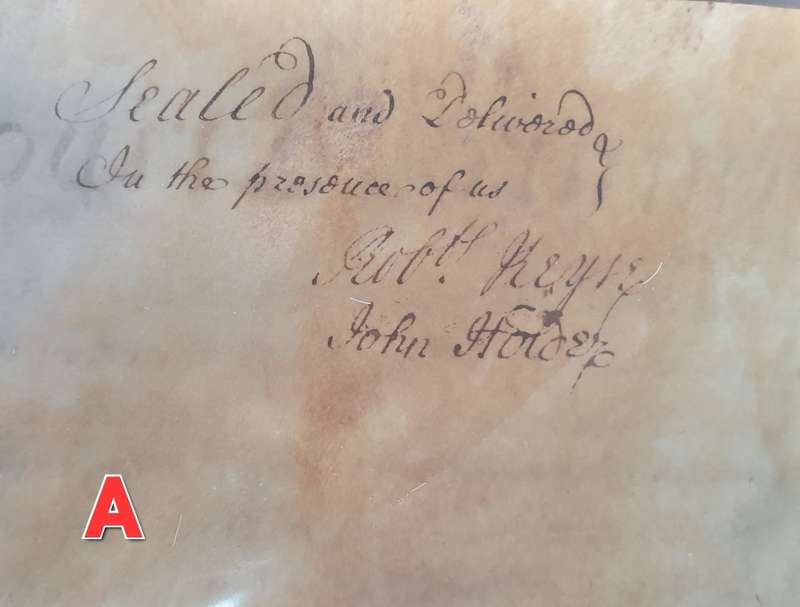 Sealed and Delivered }
In the presence of us
Robth.
John Holder
A